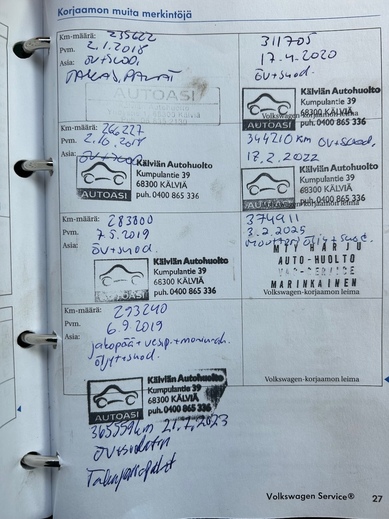 Korjaamon muita merkintöjä
Km-määrä: 235622
Pvm. 2.1.2018
Asia: öv+suod.
TAKAJ.PALAT
AUTOASI
68300 KÄLVIÄ
Km-määrä: 266227
Pvm. 2.10.2018
Asia: öv+suod
AUTOASI
Kälviän Autohuolto
Kumpulantie 39
68300 KÄLVIÄ
puh. 0400 865 336
Km-määrä: 283800
Pvm. 7.5.2019
Asia: öv+suod.
AUTOASI
Kälviän Autohuolto
Kumpulantie 39
68300 KÄLVIÄ
puh. 0400 865 336
Km-määrä: 293240
Pvm. 6.9.2019
Asia: jakopää+vesip.+
öljyt+suod.
AUTOASI
Kälviän Autohuolto
Kumpulantie 39
68300 KÄLVIÄ
puh. 0400 865 336
365559km 21.2.2023
311705
17.4.2020
öv+suod.
AUTOASI
Kälviän Autohuolto
Kumpulantie 39
68300 KÄLVIÄ
Volkswagen-korjaamon leima
puh. 0400 865 336
344210 km öv+suod.
17.2.2022
AUTOASI
Kälviän Autohuolto
Kumpulantie 39
68300 KÄLVIÄ
puh. 0400 865 336
374911
3.2.2025
moottoriöljyt+suod.
HARJU
AUTO-HUOLTO
MARINKAINEN
Volkswagen-korjaamon leima
Volkswagen-korjaamon leima
Volkswagen Service® 27